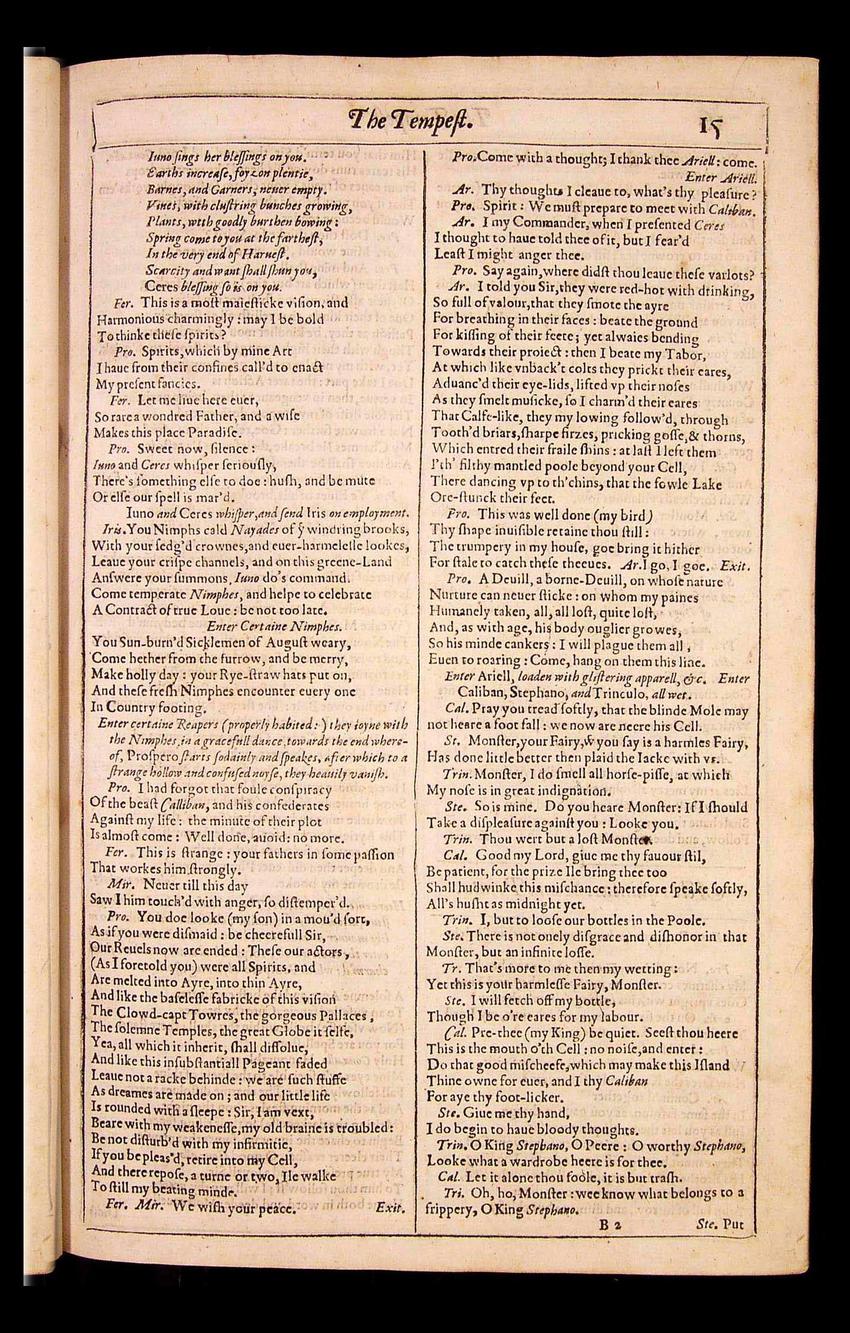 The Tempeſt.
15
Iuno ſings her bleſſings on you.
Earths increaſe, foyzon plentie,
Barnes, and Garners, neuer empty.
Vines, with cluſtring bunches growing,
Plants, wtth goodly burthen bowing:
Spring come to you at the fartheſt,
In the very end of Harueſt.
Scarcity and want ſhall ſhun you,
Ceres bleſſing ſo is on you.
Fer. This is a moſt maieſticke viſion, and
Harmonious charmingly : may I be bold
To thinke theſe ſpirits?
Pro. Spirits, which by mine Art
I haue from their confines call'd to enact
My preſent fancies.
Fer. Let me liue here euer,
So rare a wondred Father, and a wife
Makes this place Paradiſe.
Pro. Sweet now, ſilence :
Iuno and Ceres whiſper ſeriouſly,
There's ſomething elſe to doe : huſh, and be mute
Or elſe our ſpell is mar'd.
Iuno and Ceres whiſper, and ſend Iris on employment.
Iris. You Nimphs cald Nayades of ẙ windring brooks,
With your ſedg'd crownes, and euer-harmeleſſe lookes,
Leaue your criſpe channels, and on this greene-Land
Anſwere your ſummons, Iuno do's command.
Come temperate Nimphes, and helpe to celebrate
A Contract of true Loue : be not too late.
Enter Certaine Nimphes.
You Sun-burn'd Sicklemen of Auguſt weary,
Come hether from the furrow, and be merry,
Make holly day : your Rye-ſtraw hats put on,
And theſe freſh Nimphes encounter euery one
In Country footing.
Enter certaine Reapers (properly habited : ) they ioyne with
the Nimphes, in a gracefull dance, towards the end where-
of, Proſpero ſtarts ſodainly and ſpeakes, after which to a
ſtrange hollow and confuſed noyſe, they heauily vaniſh.
Pro. I had forgot that foule conſpiracy
Of the beaſt Calliban, and his confederates
Againſt my life : the minute of their plot
Is almoſt come : Well done, auoid : no more.
Fer. This is ſtrange : your fathers in ſome paſſion
That workes him ſtrongly.
Mir. Neuer till this day
Saw I him touch'd with anger, ſo diſtemper'd.
Pro. You doe looke (my ſon) in a mou'd ſort,
As if you were diſmaid : be cheerefull Sir,
Our Reuels now are ended : Theſe our actors,
(As I foretold you) were all Spirits, and
Are melted into Ayre, into thin Ayre,
And like the baſeleſſe fabricke of this viſion
The Clowd-capt Towres, the gorgeous Pallaces,
The ſolemne Temples, the great Globe it ſelfe,
Yea, all which it inherit, ſhall diſſolue,
And like this inſubſtantiall Pageant faded
Leaue not a racke behinde : we are ſuch ſtuffe
As dreames are made on; and our little life
Is rounded with a ſleepe : Sir, I am vext,
Beare with my weakeneſſe, my old braine is troubled:
Be not diſturb'd with my infirmitie,
If you be pleas'd, retire into my Cell,
And there repoſe, a turne or two, Ile walke
To ſtill my beating minde.
Fer. Mir. We wiſh your peace. Exit.
Pro. Come with a thought; I thank thee Ariell : come.
Enter Ariell.
Ar. Thy thoughts I cleaue to, what's thy pleaſure?
Pro. Spirit : We muſt prepare to meet with Caliban.
Ar. I my Commander, when I preſented Ceres
I thought to haue told thee of it, but I fear'd
Leaſt I might anger thee.
Pro. Say again, where didſt thou leaue theſe varlots?
Ar. I told you Sir, they were red-hot with drinking,
So full of valour, that they ſmote the ayre
For breathing in their faces : beate the ground
For kiſſing of their feete; yet alwaies bending
Towards their proiect : then I beate my Tabor,
At which like vnback't colts they prickt their eares,
Aduanc'd their eye-lids, lifted vp their noſes
As they ſmelt muſicke, ſo I charm'd their eares
That Calfe-like, they my lowing follow'd, through
Tooth'd briars, ſharpe firzes, pricking goſſe, & thorns,
Which entred their fraile ſhins : at laſt I left them
I'th' filthy mantled poole beyond your Cell,
There dancing vp to th'chins, that the fowle Lake
Ore-ſtunck their feet.
Pro. This was well done (my bird)
Thy ſhape inuiſible retaine thou ſtill :
The trumpery in my houſe, goe bring it hither
For ſtale to catch theſe theeues. Ar. I go, I goe. Exit.
Pro. A Deuill, a borne-Deuill, on whoſe nature
Nurture can neuer ſticke : on whom my paines
Humanely taken, all, all loſt, quite loſt,
And, as with age, his body ouglier growes,
So his minde cankers : I will plague them all,
Euen to roaring : Come, hang on them this line.
Enter Ariell, loaden with gliſtering apparell, &c. Enter
Caliban, Stephano, and Trinculo, all wet.
Cal. Pray you tread ſoftly, that the blinde Mole may
not heare a foot fall : we now are neere his Cell.
St. Monſter, your Fairy, w͏ͨ you ſay is a harmles Fairy,
Has done little better then plaid the Iacke with vs.
Trin. Monſter, I do ſmell all horſe-piſſe, at which
My noſe is in great indignation.
Ste. So is mine. Do you heare Monſter: If I ſhould
Take a diſpleaſure againſt you : Looke you.
Trin. Thou wert but a loſt Monſter.
Cal. Good my Lord, giue me thy fauour ſtil,
Be patient, for the prize Ile bring thee too
Shall hudwinke this miſchance : therefore ſpeake ſoftly,
All's huſht as midnight yet.
Trin. I, but to looſe our bottles in the Poole.
Ste. There is not onely diſgrace and diſhonor in that
Monſter, but an infinite loſſe.
Tr. That's more to me then my wetting :
Yet this is your harmleſſe Fairy, Monſter.
Ste. I will fetch off my bottle,
Though I be o're eares for my labour.
Cal. Pre-thee (my King) be quiet. Seeſt thou heere
This is the mouth o'th Cell : no noiſe, and enter :
Do that good miſcheefe, which may make this Iſland
Thine owne for euer, and I thy Caliban
For aye thy foot-licker.
Ste. Giue me thy hand,
I do begin to haue bloody thoughts.
Trin. O King Stephano, O Peere : O worthy Stephano,
Looke what a wardrobe heere is for thee.
Cal. Let it alone thou foole, it is but traſh.
Tri. Oh, ho, Monſter : wee know what belongs to a
frippery, O King Stephano.
B 2
Ste. Put